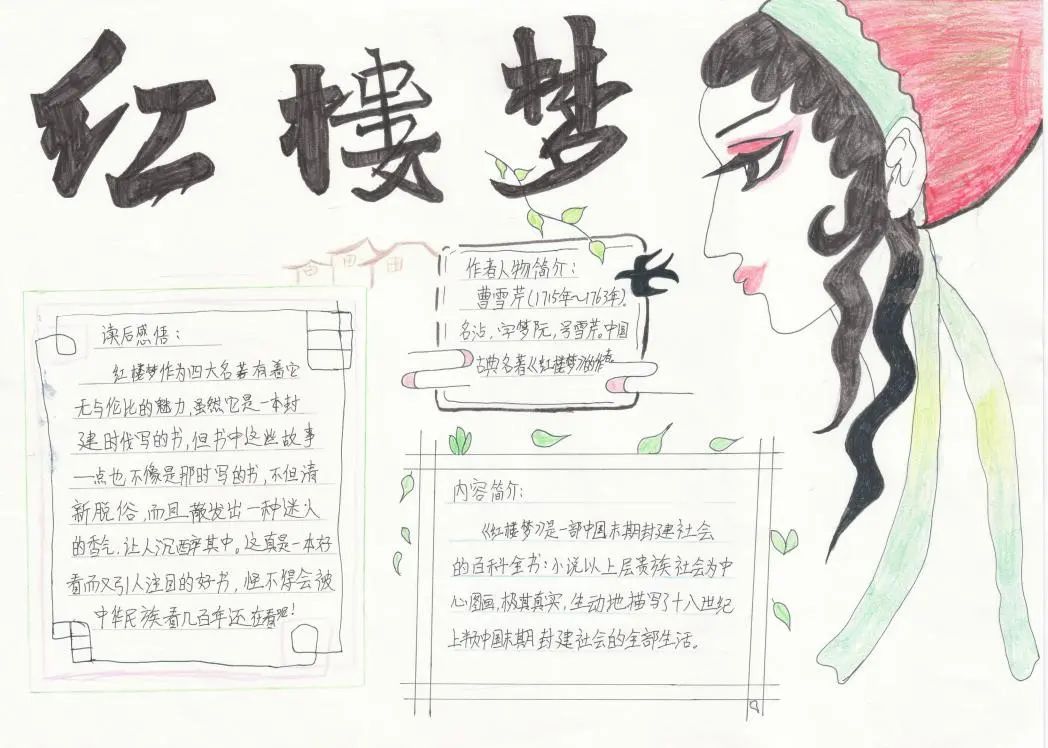 红楼梦
作者人物简介:
曹雪芹(1715年~1763年).
名沾,字梦阮,号雪芹.中国
古典名著《红楼梦》的作者
读后感悟:
红楼梦作为四大名著有着它
无与伦比的魅力,虽然它是一本封
建时代写的书,但书中这些故事
一点也不像是那时写的书,不但清
新脱俗,而且散发出一种迷人
的香气,让人沉醉其中。这真是一本好
看而又引人注目的好书,怪不得会被
中华民族看几百年还在看吧!
内容简介:
《红楼梦》是一部中国末期封建社会
的百科全书:小说以上层贵族社会为中
心图画,极其真实,生动地描写了十八世纪
上半页中国末期封建社会的全部生活。